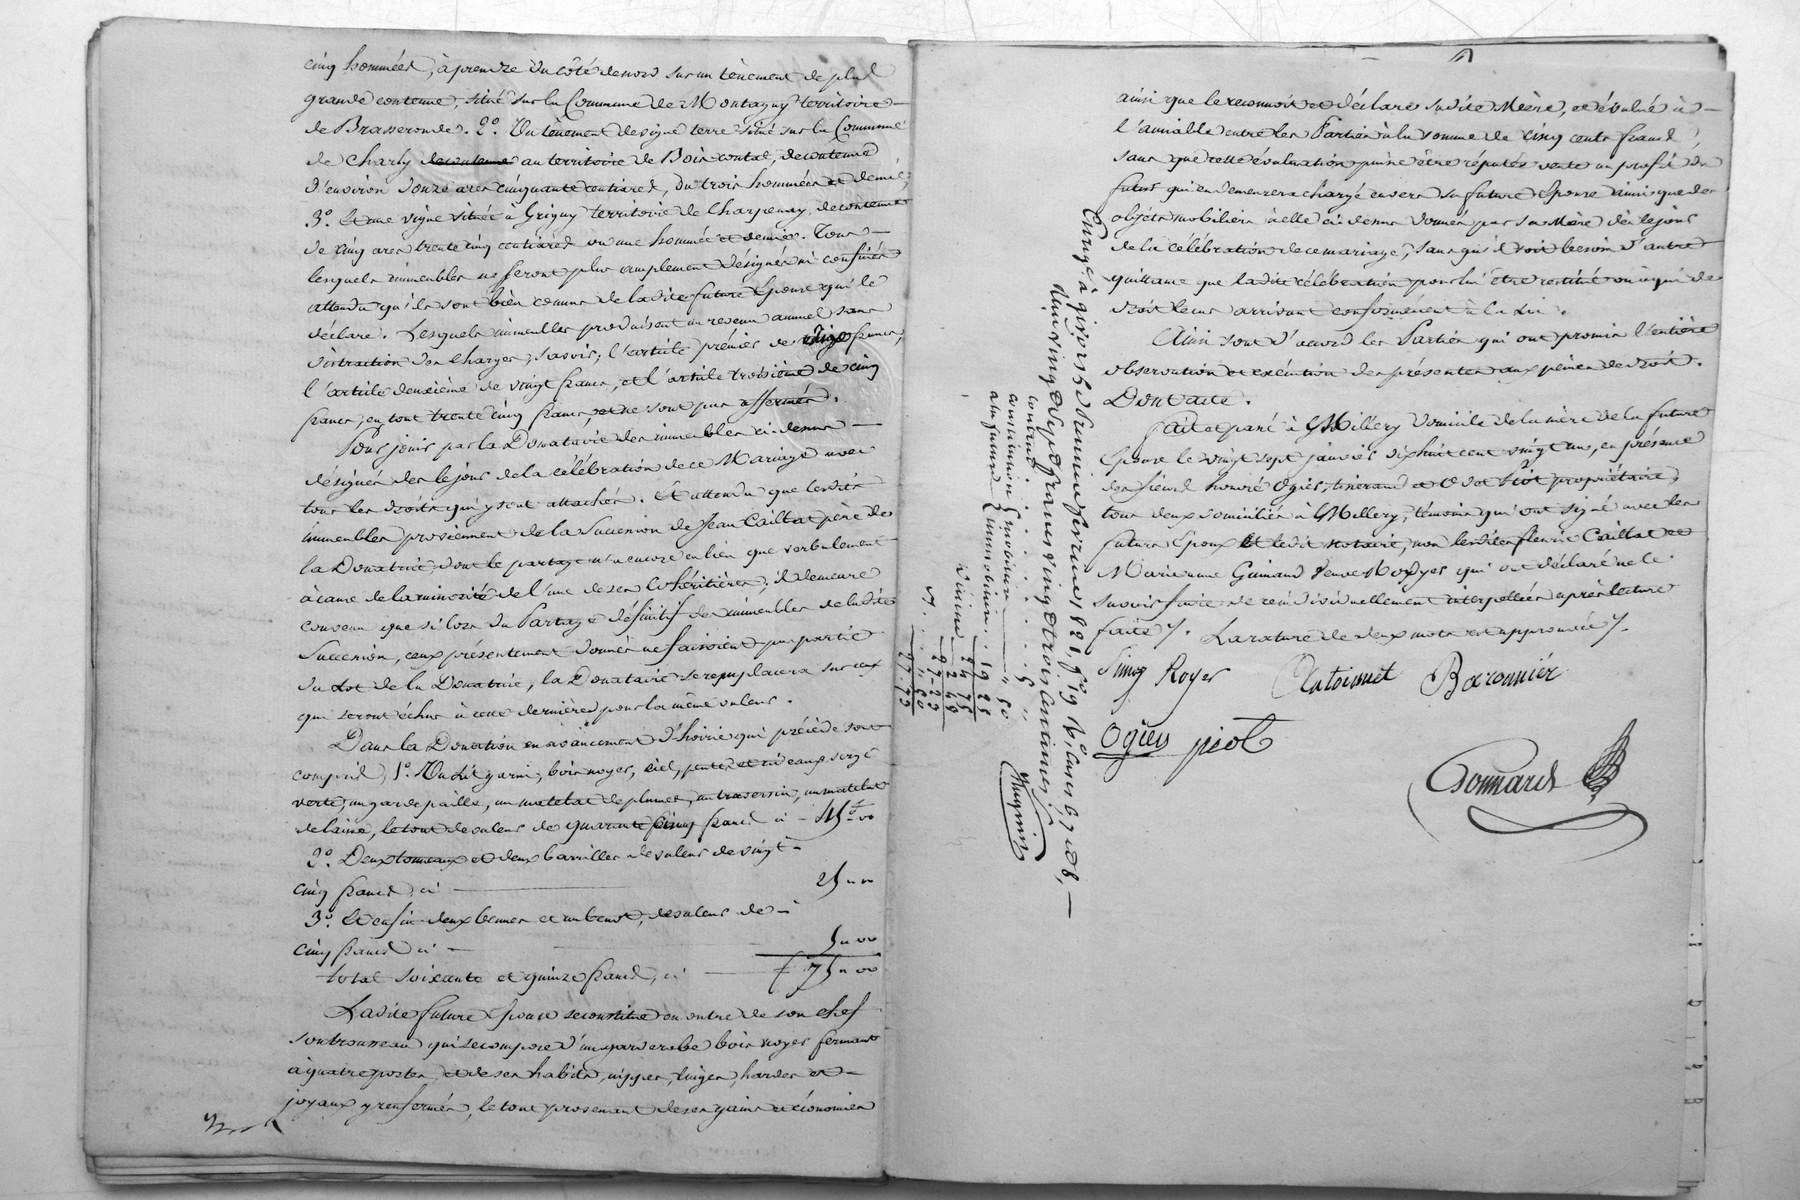 cinq hommées, à prendre du côté de nord sur un tènement de plus
grande contenue, situé sur la Commune de Montagny territoire
de Brasseronde. 2º. Un tènement de vigne terre situé sur la Commune
de Charly de contenue au territoire de Bois contal, de contenue
d'environ douze ares cinquante centiares, ou trois hommées et demie,
3º. Et une vigne située à Grigny territoire de Charpenay, de contenue
de cinq ares trente cinq centiares ou une hommée et demie. Tous
lesquels immeubles ne seront plus amplement désignés ni confinés
attendu qu'ils sont bien connus de ladite future Epouse qui le
déclare. Lesquels immeubles produisent un revenu annuel sans
distraction des charges, savoir, l'article premier de francs,
l'article deuxième de vingt francs, et l'article troisième de cinq
francs, en tout trente cinq francs, et ne sont pas affermés.
Pour jouir par la Donataire des immeubles ci dessus
désignés dès le jour de la célébration de ce Mariage avec
tous les droits qui y sont attachés. Et attendu que lesdits
immeubles proviennent de la Succession de Jean Caillat père de
la Donatrice, dont le partage n'a encore eu lieu que verbalement
à cause de la minorité de l'une de ses Cohéritières, il demeure
convenu que si lors du Partage définitif des immeubles de ladite
Succession, ceux présentement donnés ne faisoient pas partie
du Lot de la Donatrice, la Donataire se remplacera sur ceux
qui seront échus à cette dernière pour la même valeur.
Dans la Donation en avancement d'hoirie qui précède sont
compris, 1º. Un Lit garni, bois noyer, ciel, pentes et rideaux serge
verte, un garde paille, un matelat de plumes, un traversin, un matelat
de laine, le tout de valeur de quarante cinq francs ci - 45 f. 00
2º. Deux tonneaux et deux barilles de valeur de vingt -
cinq francs, ci — 25 " 00
3º. Et enfin deux bennes et un benot, de valeur de -
cinq francs ci — 5 " 00
total soixante et quinze francs, ci — f 75 " 00
Ladite future Epouse se constitue en outre de son chef
son trousseau qui se compose d'un garderobe bois noyer fermant
à quatre portes, et de ses habits, nippes, linges, hardes et -
joyaux y renfermés, le tout provenant de ses gains et économies
ainsi que le reconnoit et déclare sadite Mère, et évalué à -
l'amiable entre les Parties à la somme de cinq cents francs,
sans que cette évaluation puisse être réputée vente au profit du
futur qui en demeurera chargé envers sa future Epouse ainsi que des
objets mobiliers à elle ci dessus donnés par sa Mère dès le jour
de la célébration de ce mariage, sans qu'il soit besoin d'autre
quittance que ladite célébration pour lui être restitué ou à qui de
droit le cas arrivant conformément à la Loi.
Ainsi sont d'accord les Parties qui ont promis l'entière
observation et exécution des présentes aux peines de droit.
Dont acte.
Fait et passé à Millery domicile de la mère de la future
Epouse le vingt sept janvier dix huit cent vingt un, en présence
des sieurs honoré Ogier, tisserand et Piot propriétaire,
tous deux domiciliés à Millery, témoins qui ont signé avec les
futurs Epoux Et ledit notaire, non lesdites fleurie Caillat et
Marianne Guimand Veuve qui ont déclaré ne le
savoir faire de ce individuellement interpellées après lecture
faite /. La rature de deux mots est approuvée /.
Simon Royer Antoinnet Baronnier
Ogier piot
Bonnard
Enregé à givors le premier février 1821, fº 19 Rº. cases 6, 7 et 8, —
reçu vingt sept francs vingt trois centimes /.
contrat . . . . . 5 "
constitution mobilière — " 50
Immobilière . 19 25
24 75
Dixième 2 48
27 - 23
" 50
27. 73